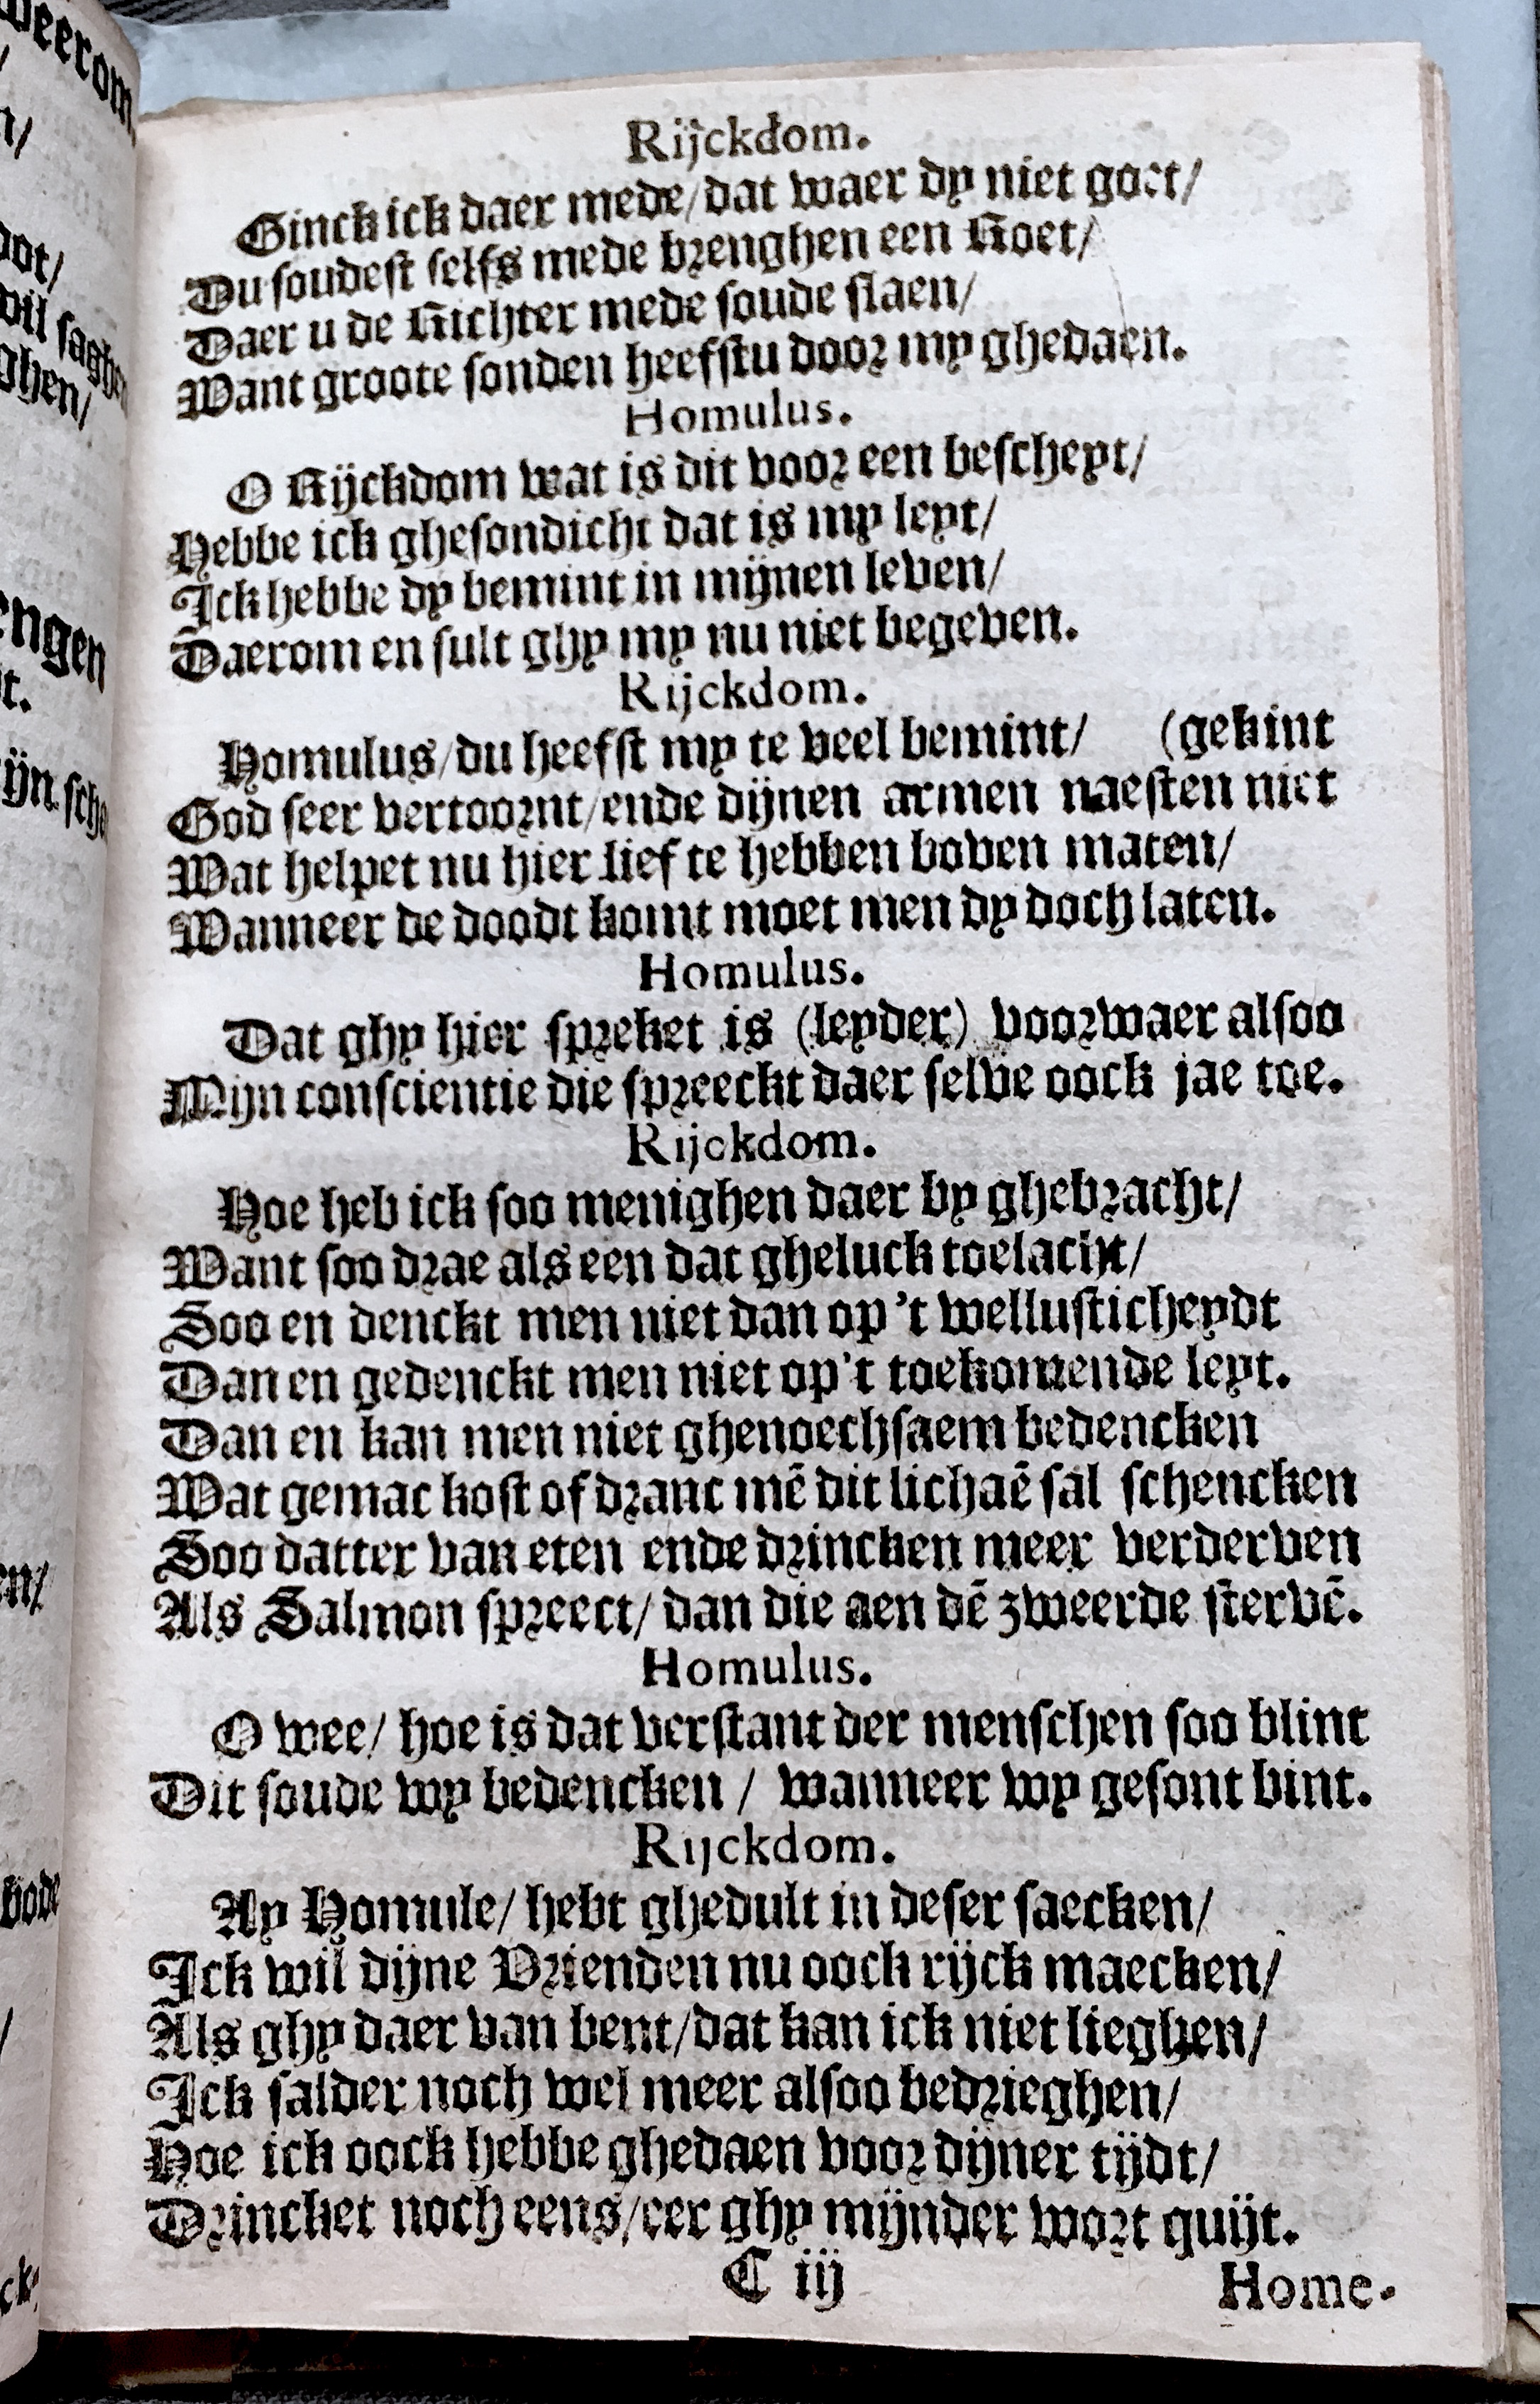 Rijckdom.
Ginck ick daer mede/dat waer dy niet goet/
Du soudest selfs mede brenghen een Roet/
Daer u de Richter mede soude slaen/
Want groote sonden heefstu door my ghedaen.
Homulus.
O Rijckdom wat is dit voor een bescheyt/
Hebbe ick ghesondicht dat is my leyt/
Ick hebbe dy bemint in mijnen leven/
Daerom en sult ghy my nu niet begeven.
Rijckdom.
Homulus/du heefst my te veel bemint/ (gekint
God seer vertoornt/ende dijnen armen naesten niet
Wat helpet nu hier lief te hebben boven maten/
Wanneer de doodt komt moet men dy doch laten.
Homulus.
Dat ghy hier spreket is (leyder) voorwaer alsoo
Mijn conscientie die spreeckt daer selve oock jae toe.
Rijckdom.
Hoe heb ick soo menighen daer by ghebracht/
Want soo drae als een dat gheluck toelacht/
Soo en denckt men niet dan op 't wellusticheydt
Dan en gedenckt men niet op't toekomende leyt.
Dan en kan men niet ghenoechsaem bedencken
Wat gemac kost of dranc mē dit lichaē sal schencken
Soo datter van eten ende drincken meer verderven
Als Salmon spreect/ dan die aen dē zweerde stervē.
Homulus.
O wee/ hoe is dat verstant der menschen soo blint
Dit soude wy bedencken / wanneer wy gesont bint.
Rijckdom.
Ay Homule/ hebt ghedult in deser saecken/
Ick wil dijne Vrienden nu oock rijck maecken/
Als ghy daer van bent/dat kan ick niet lieghen/
Ick salder noch wel meer alsoo bedrieghen/
Hoe ick oock hebbe ghedaen voor dijner tijdt/
Drincket noch eens/eer ghy mijnder wort quijt.
C iij
Home.